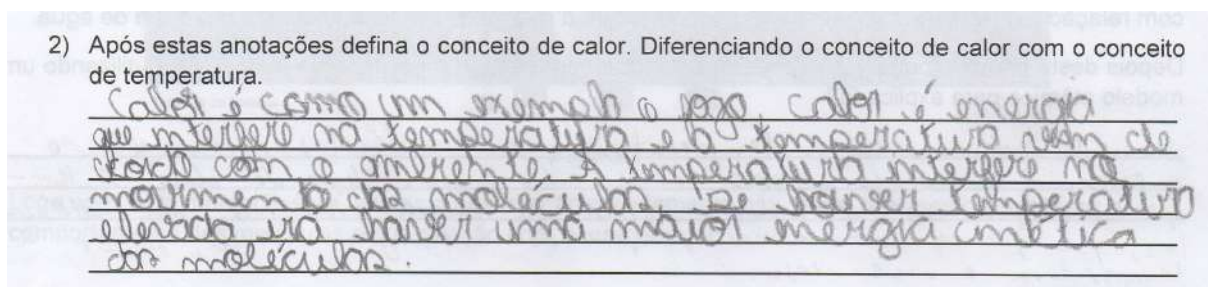 2) Após estas anotações defina o conceito de calor. Diferenciando o conceito de calor com o conceito
de temperatura.
Calor é como um exemplo o fogo, calor é energia
que interfere na temperatura e a temperatura vem de
acordo com o ambiente. A temperatura interfere no
movimento das moléculas se houver temperatura
elevada irá houver uma maior energia cinética
das moléculas.